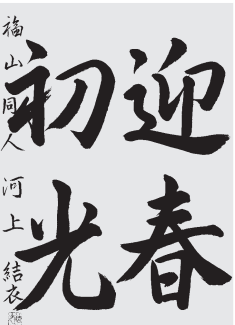 迎春
初光
福山同人 河上結衣